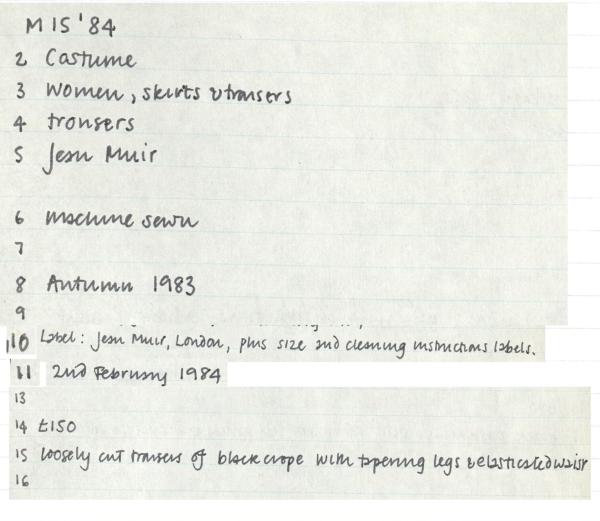 M15 '84
2 Costume
3 Women, skirts & trousers
4 trousers
5 Jean Muir
6 machine sewn
7
8 Autumn 1983
9
10 Label: Jean Muir, London, plus size and cleaning instructions labels.
11 2nd February 1984
13
14 £150
15 loosely cut trousers of black crepe with tapering legs & elasticated waist
16